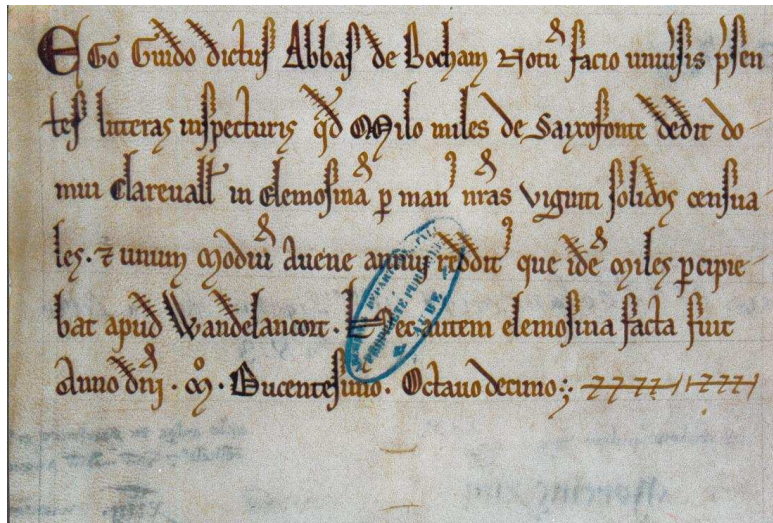 Ego Guido dictus Abbas de Bocham Notū facio uniu͛sis p͛sen
tes litteras inspecturis qd̄ Milo miles de Saixofonte dedit do
mui Clareuall̄ in elemosina ꝑ man᷒ nr̄as viginti solidos censua
les. ⁊ unum Modiū Auene annui reddit᷒ que idē miles ꝑcipie
bat apud Wandelancort. Hec autem elemosina facta fuit
Anno dn̄i. Mͦ. Ducentesimo. Octauo decimo
DEPART
PROPRIETE PUBLIQUE
AUBE